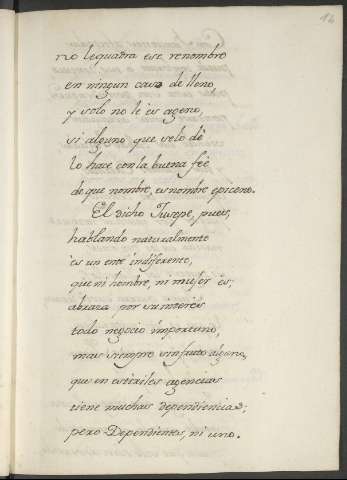 14
no le quadra ese renombre
en ningun caso de lleno,
y solo no le és ageno,
si alguno que selo dé
lo hace con la buena feé
de que nombre, es nombre epiceno.
El dicho Jusepe, pues,
hablando naturalmente
és un ente indiferente,
que ni hombre, ni mujer és;
abraza por su interés
todo negocio importuno,
mas siempre sin fruto alguno,
que en estériles agencias
tiene muchas dependiencias;
pero Dependientes, ni uno.